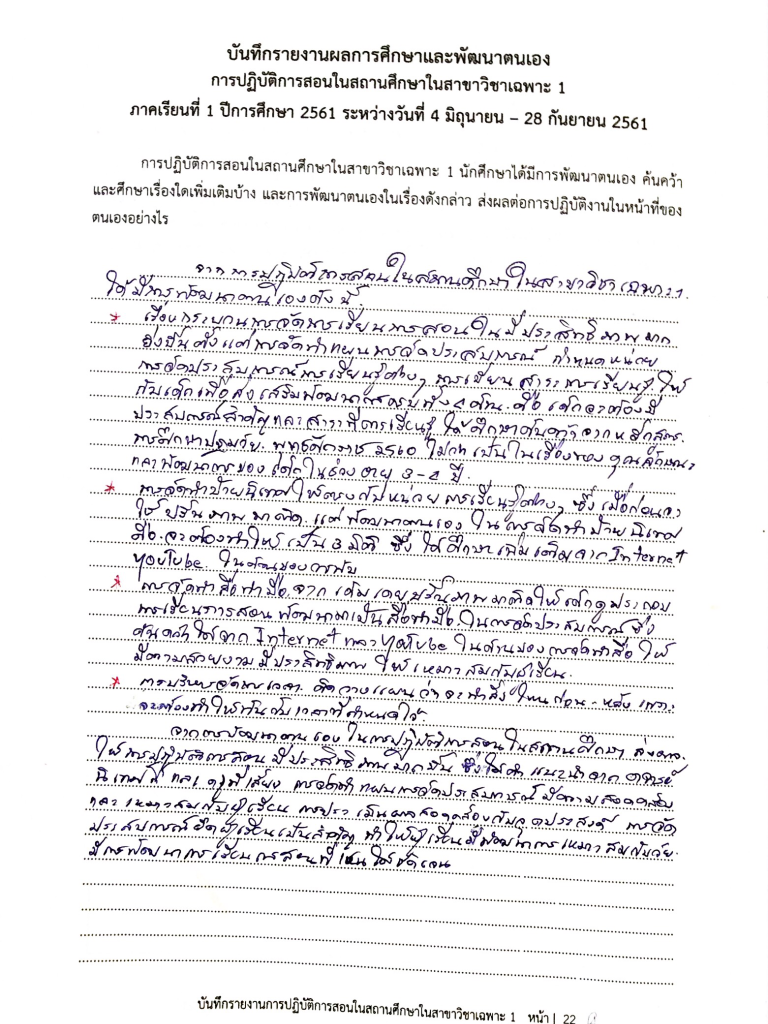 บันทึกรายงานผลการศึกษาและพัฒนาตนเอง
การปฏิบัติการสอนในสถานศึกษาในสาขาวิชาเฉพาะ 1
ภาคเรียนที่ 1 ปีการศึกษา 2561 ระหว่างวันที่ 4 มิถุนายน – 28 กันยายน 2561
การปฏิบัติการสอนในสถานศึกษาในสาขาวิชาเฉพาะ 1 นักศึกษาได้มีการพัฒนาตนเอง ค้นคว้า
และศึกษาเรื่องใดเพิ่มเติมบ้าง และการพัฒนาตนเองในเรื่องดังกล่าว ส่งผลต่อการปฏิบัติงานในหน้าที่ของ
ตนเองอย่างไร
จากการปฏิบัติการสอนในสถานศึกษาในสาขาวิชาเฉพาะ 1
ได้มีการพัฒนาตนเองดังนี้
* เรื่องกระบวนการจัดการเรียนการสอนให้มีประสิทธิภาพมาก
ยิ่งขึ้นตั้งแต่การจัดทำแผนการจัดประสบการณ์ กำหนดหน่วย
การจัดประสบการณ์การเรียนรู้ต่างๆ การเขียนสาระการเรียนรู้ให้
กับเด็กเพื่อส่งเสริมพัฒนาการครบทั้ง 4 ด้าน คือ เด็กจะต้องมี
ประสบการณ์สำคัญและสาระที่ควรเรียนรู้ ได้ศึกษาค้นคว้าจากหลักสูตร
การศึกษาปฐมวัย พุทธศักราช 2560 ไม่ว่าเป็นในเรื่องของ คุณลักษณะ
และพัฒนาการของเด็กในช่วงอายุ 3-4 ปี
* การจัดทำป้ายนิเทศให้ตรงกับหน่วยการเรียนรู้ต่างๆ ซึ่งเมื่อก่อนจะ
ใช้ปริ้นภาพมาติด แต่พัฒนาตนเองในการจัดทำป้ายนิเทศ
คือ จะต้องทำให้เป็น 3 มิติ ซึ่งได้ศึกษาเพิ่มเติมจาก Internet
Youtube ในด้านของการพับ
* การจัดทำสื่อทำมือ จากเดิมเคยปริ้นภาพมาติดให้เด็กดูประกอบ
การเรียนการสอน พัฒนามาเป็นสื่อทำมือในการจัดประสบการณ์ ซึ่ง
ค้นคว้าได้จาก Internet และ Youtube ในด้านของการจัดทำสื่อ ให้
มีความสวยงาม มีประสิทธิภาพ ให้เหมาะสมกับผู้เรียน
* การบริหารจัดการเวลา คิดวางแผนว่าจะทำสิ่งไหนก่อน - หลัง เพราะ
จะต้องทำให้ทันกับเวลาที่กำหนดไว้
จากการพัฒนาตนเองในการปฏิบัติการสอนในสถานศึกษา ส่งผล
ให้การปฏิบัติการสอนมีประสิทธิภาพมากขึ้น ซึ่งได้คำแนะนำจากอาจารย์
นิเทศก์ และครูพี่เลี้ยง การจัดทำแผนการจัดประสบการณ์มีความสอดคล้อง
และเหมาะสมกับผู้เรียน การประเมินผลสอดคล้องกับจุดประสงค์ การจัด
ประสบการณ์ยึดผู้เรียนเป็นสำคัญ ทำให้ผู้เรียนมีพัฒนาการเหมาะสมกับวัย
มีการพัฒนาการเรียนการสอนที่เห็นได้ชัดเจน
บันทึกรายงานการปฏิบัติการสอนในสถานศึกษาในสาขาวิชาเฉพาะ 1 หน้า | 22